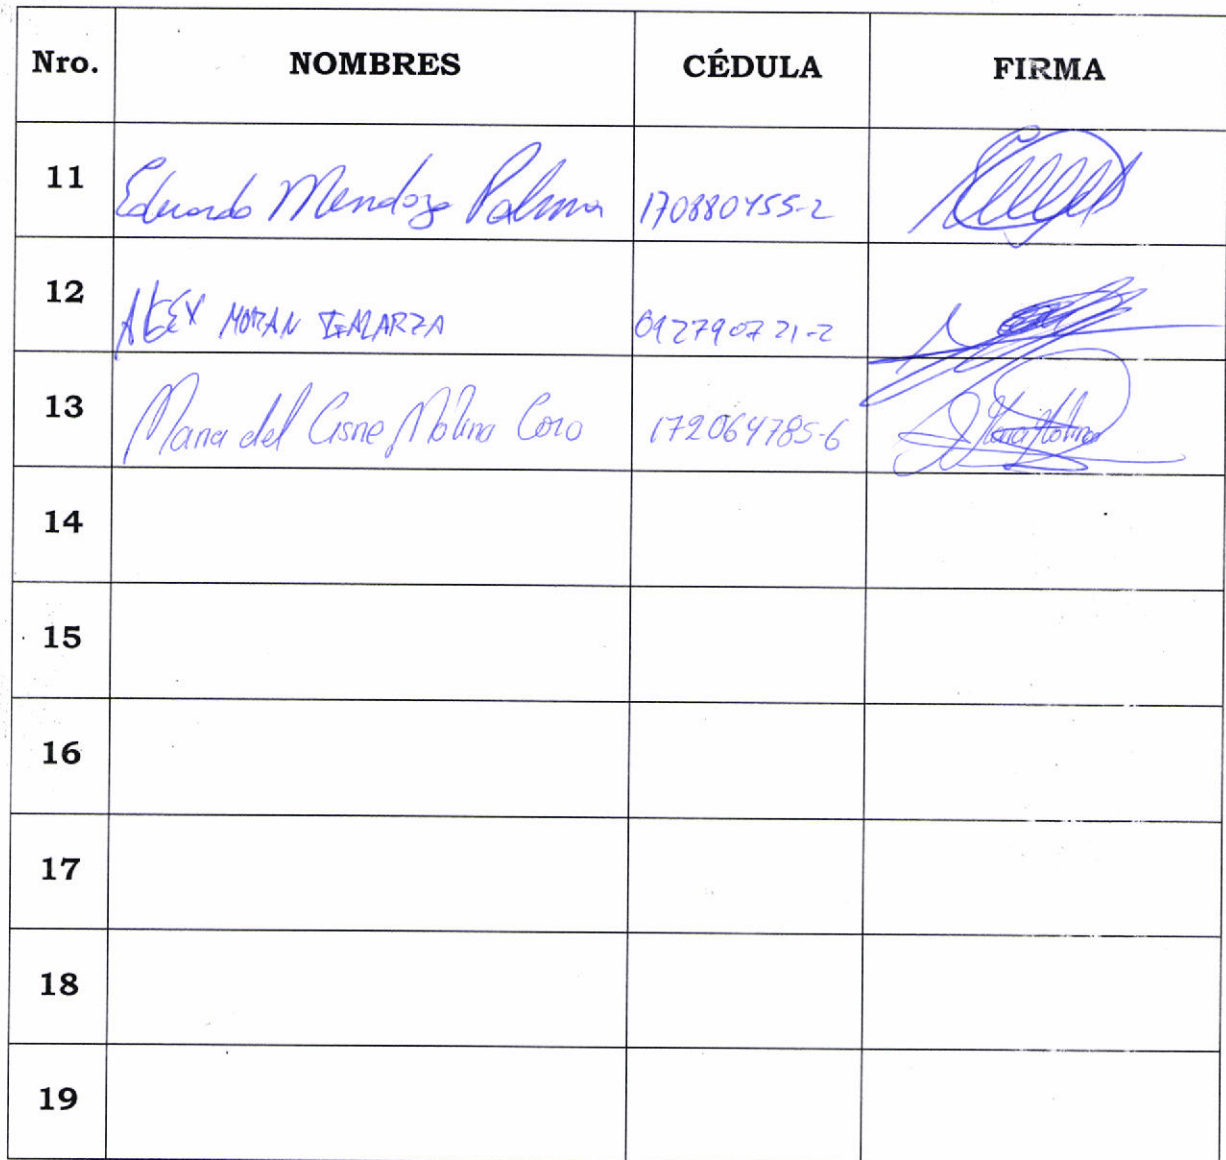 Nro. NOMBRES CÉDULA FIRMA
11 Eduardo Mendoza Palma 170880455-2
12 ALEX MORAN GALARZA 092790721-2
13 Maria del Cisne Molina Coro 172064785-6 Maria Molina
14
15
16
17
18
19